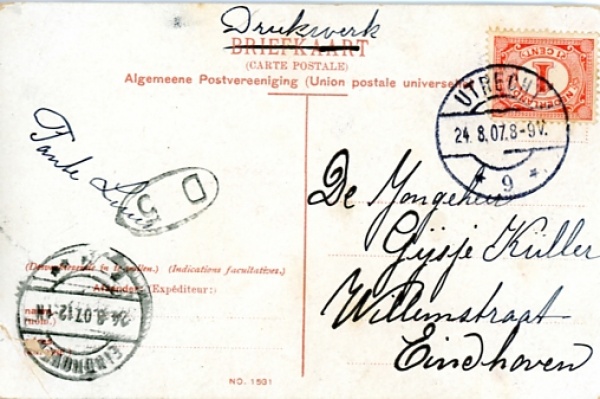 Drukwerk
BRIEFKAART
(CARTE POSTALE)
Algemeene Postvereeniging (Union postale universelle)
1 CENT
1
UTRECHT
24.8.07.8-9V.
* 9 *
Tante
D
5
De Jongeheer
Gijsje Küller
Willemstraat
Eindhoven
in te vullen.) (Indications facultatives.)
Afzender (Expéditeur:)
24.8.07.12-1N
EINDHOVEN
NO. 1531